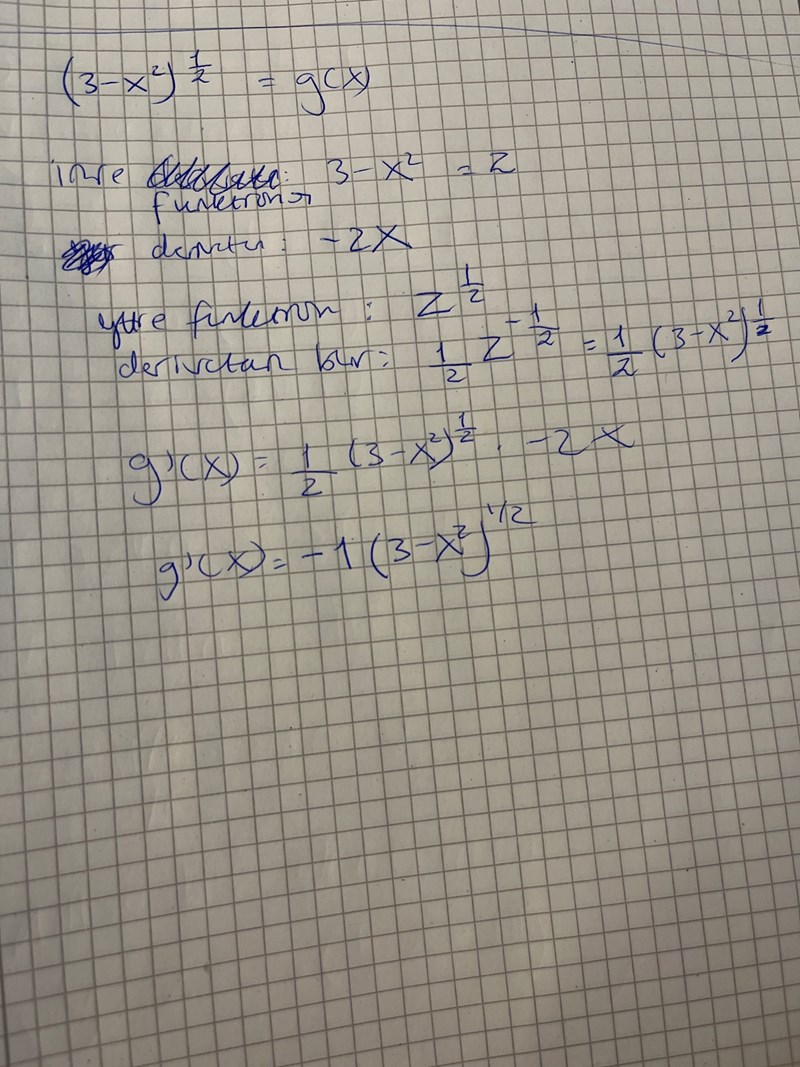 (3-x²)^{1/2} = g(x)
inre : 3-x² = z
funktion
: -2x
yttre funktion : z^{1/2}
derivatan blir: 1/2 z^{-1/2} = 1/2 (3-x²)^{1/2}
g'(x) = 1/2 (3-x²)^{1/2} · -2x
g'(x) = -1 (3-x²)^{1/2}